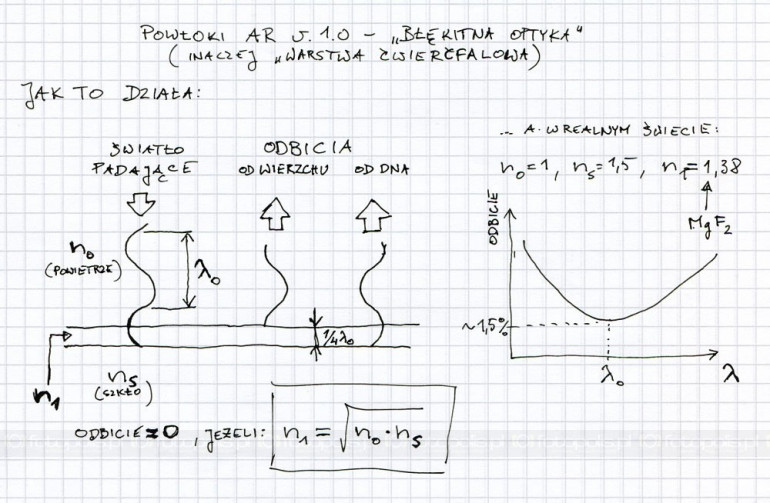 POWŁOKI AR v. 1.0 – „BŁĘKITNA OPTYKA"
(INACZEJ „WARSTWA ĆWIERĆFALOWA)
JAK TO DZIAŁA:
ŚWIATŁO
PADAJĄCE
ODBICIA
OD WIERZCHU OD DNA
n₀
(POWIETRZE)
λ₀
1/4 λ₀
n₁
nₛ
(SZKŁO)
ODBICIE = 0, JEŻELI: n₁ = √n₀·nₛ
... A W REALNYM ŚWIECIE:
n₀=1, nₛ=1,5, n₁=1,38
MgF₂
ODBICIE
~1,5%
λ₀
λ